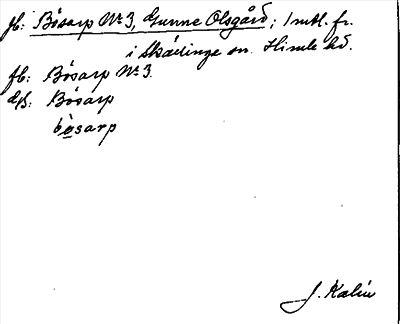 fb: Bósarp No 3, Gunne Olsgård; 1 mtl. fr.
i Skällinge sn. Himle hd.
fb: Bósarp No 3.
ds: Bósarp
bòsarp
J. Kalén